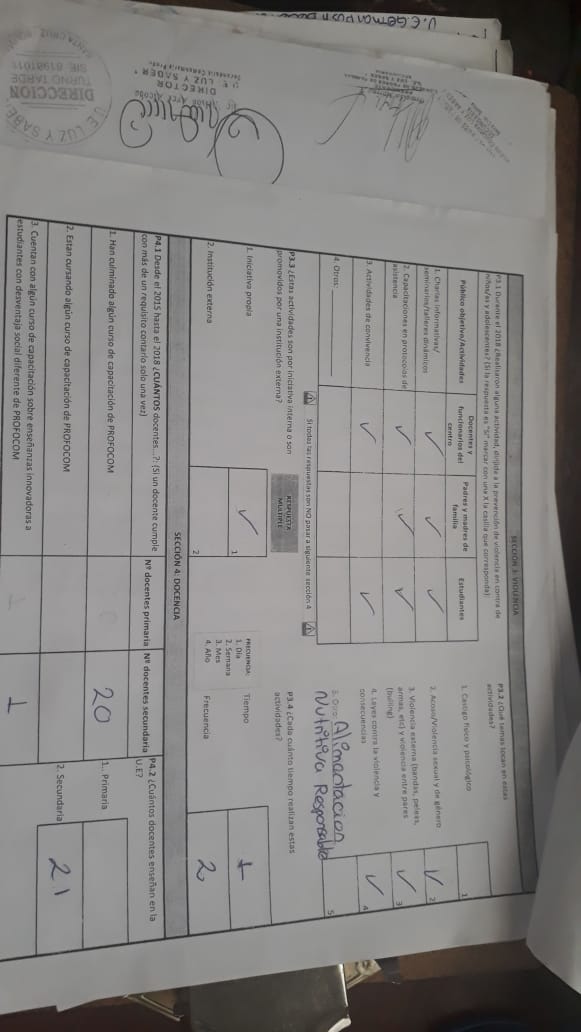 SECCIÓN 3: VIOLENCIA
P3.1 Durante el 2018 ¿Realizaron alguna actividad, dirigida a la prevención de violencia en contra de
niños/as y adolescentes? (Si la respuesta es "SI" marcar con una X la casilla que corresponda):
Público objetivo/Actividades
Docentes y funcionarios del centro
Padres y madres de familia
Estudiantes
1. Charlas informativas/
seminarios/talleres dinámicos
✓ ✓ ✓
2. Capacitaciones en protocolos de
asistencia
✓ ✓ ✓
3. Actividades de convivencia
✓ ✓
4. Otros:
Si todas las respuestas son NO pasar a siguiente sección 4
P3.2 ¿Qué temas tocan en estas
actividades?
1. Castigo físico y psicológico
1
2. Acoso/Violencia sexual y de género
✓ 2
3. Violencia externa (bandas, peleas,
armas, etc) y violencia entre pares
(buling)
✓ 3
4. Leyes contra la violencia y
consecuencias
✓ 4
5. Otro: Alimentacion
Nutritiva Responsable
5
P3.3 ¿Estas actividades son por iniciativa interna o son
promovidos por una institución externa?
RESPUESTA
MULTIPLE
1. Iniciativa propia
✓ 1
2. Institución externa
2
P3.4 ¿Cada cuánto tiempo realizan estas
actividades?
FRECUENCIA:
1. Día
2. Semana
3. Mes
4. Año
Tiempo
1
Frecuencia
2
SECCIÓN 4: DOCENCIA
P4.1 Desde el 2015 hasta el 2018 ¿CUÁNTOS docentes...?: (Si un docente cumple
con más de un requisito contarlo solo una vez)
Nº docentes primaria
Nº docentes secundaria
1. Han culminado algún curso de capacitación de PROFOCOM
20
2. Estan cursando algún curso de capacitación de PROFOCOM
3. Cuentan con algún curso de capacitación sobre enseñanzas innovadoras a
estudiantes con desventaja social diferente de PROFOCOM
1
P4.2 ¿Cuántos docentes enseñan en la
U.E?
1. Primaria
2. Secundaria
21
DIRECTOR
U.E. LUZ Y SABER
U.E. LUZ Y SABE
DIRECCION
TURNO TARDE
SIE 81981011
SANTA CRUZ